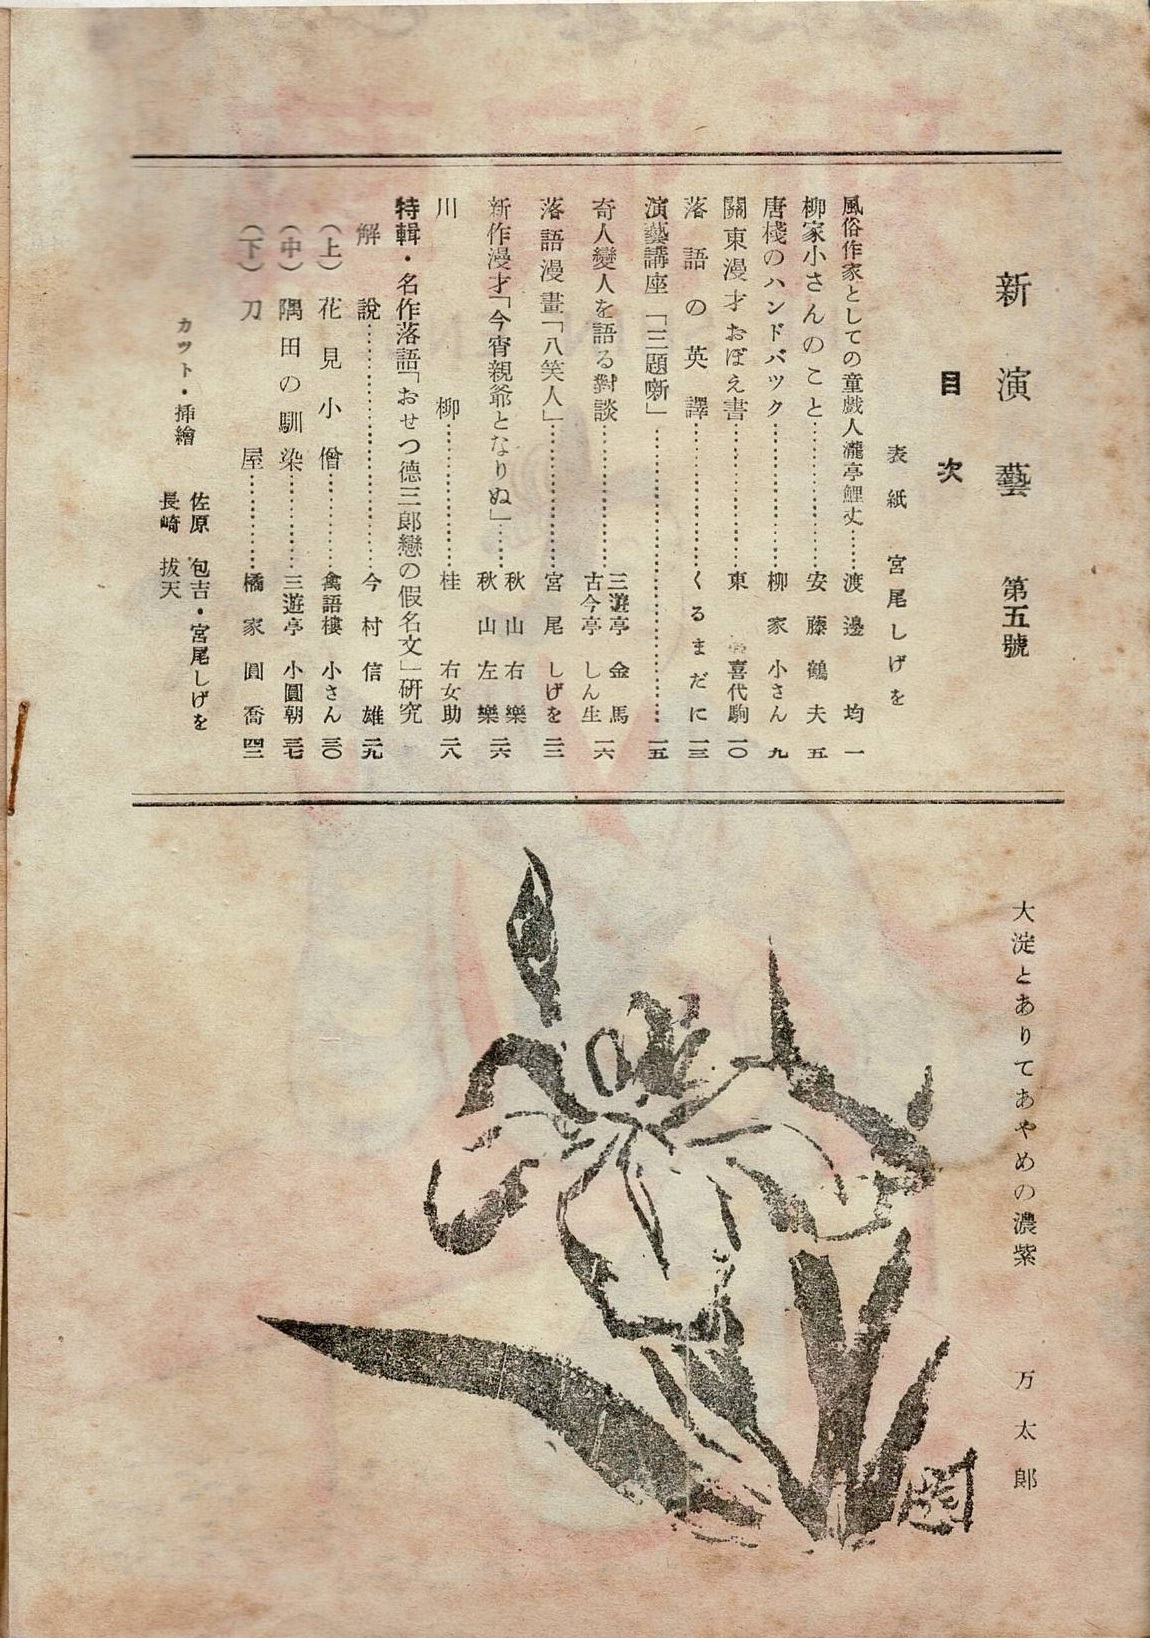 新演藝 第五號
目次
表紙 宮尾しげを
風俗作家としての童戯人瀧亭鯉丈……渡邊均 一
柳家小さんのこと……安藤鶴夫 五
唐棧のハンドバック……柳家小さん 九
關東漫才おぼえ書……東喜代駒 一〇
落語の英譯……くるまだに 一三
演藝講座「三題噺」…… 一五
奇人變人を語る對談……三遊亭金馬 古今亭しん生 一六
落語漫畫「八笑人」……宮尾しげを 二三
新作漫才「今宵親爺となりぬ」……秋山右樂 秋山左樂 二六
川柳……桂右女助 二八
特輯・名作落語「おせつ德三郎戀の假名文」硏究
解說……今村信雄 二九
(上)花見小僧……禽語樓小さん 三〇
(中)隅田の馴染……三遊亭小圓朝 三七
(下)刀屋……橘家圓喬 四二
カット・揷繪 佐原包吉・宮尾しげを
長崎拔天
大淀とありてあやめの濃紫 万太郎